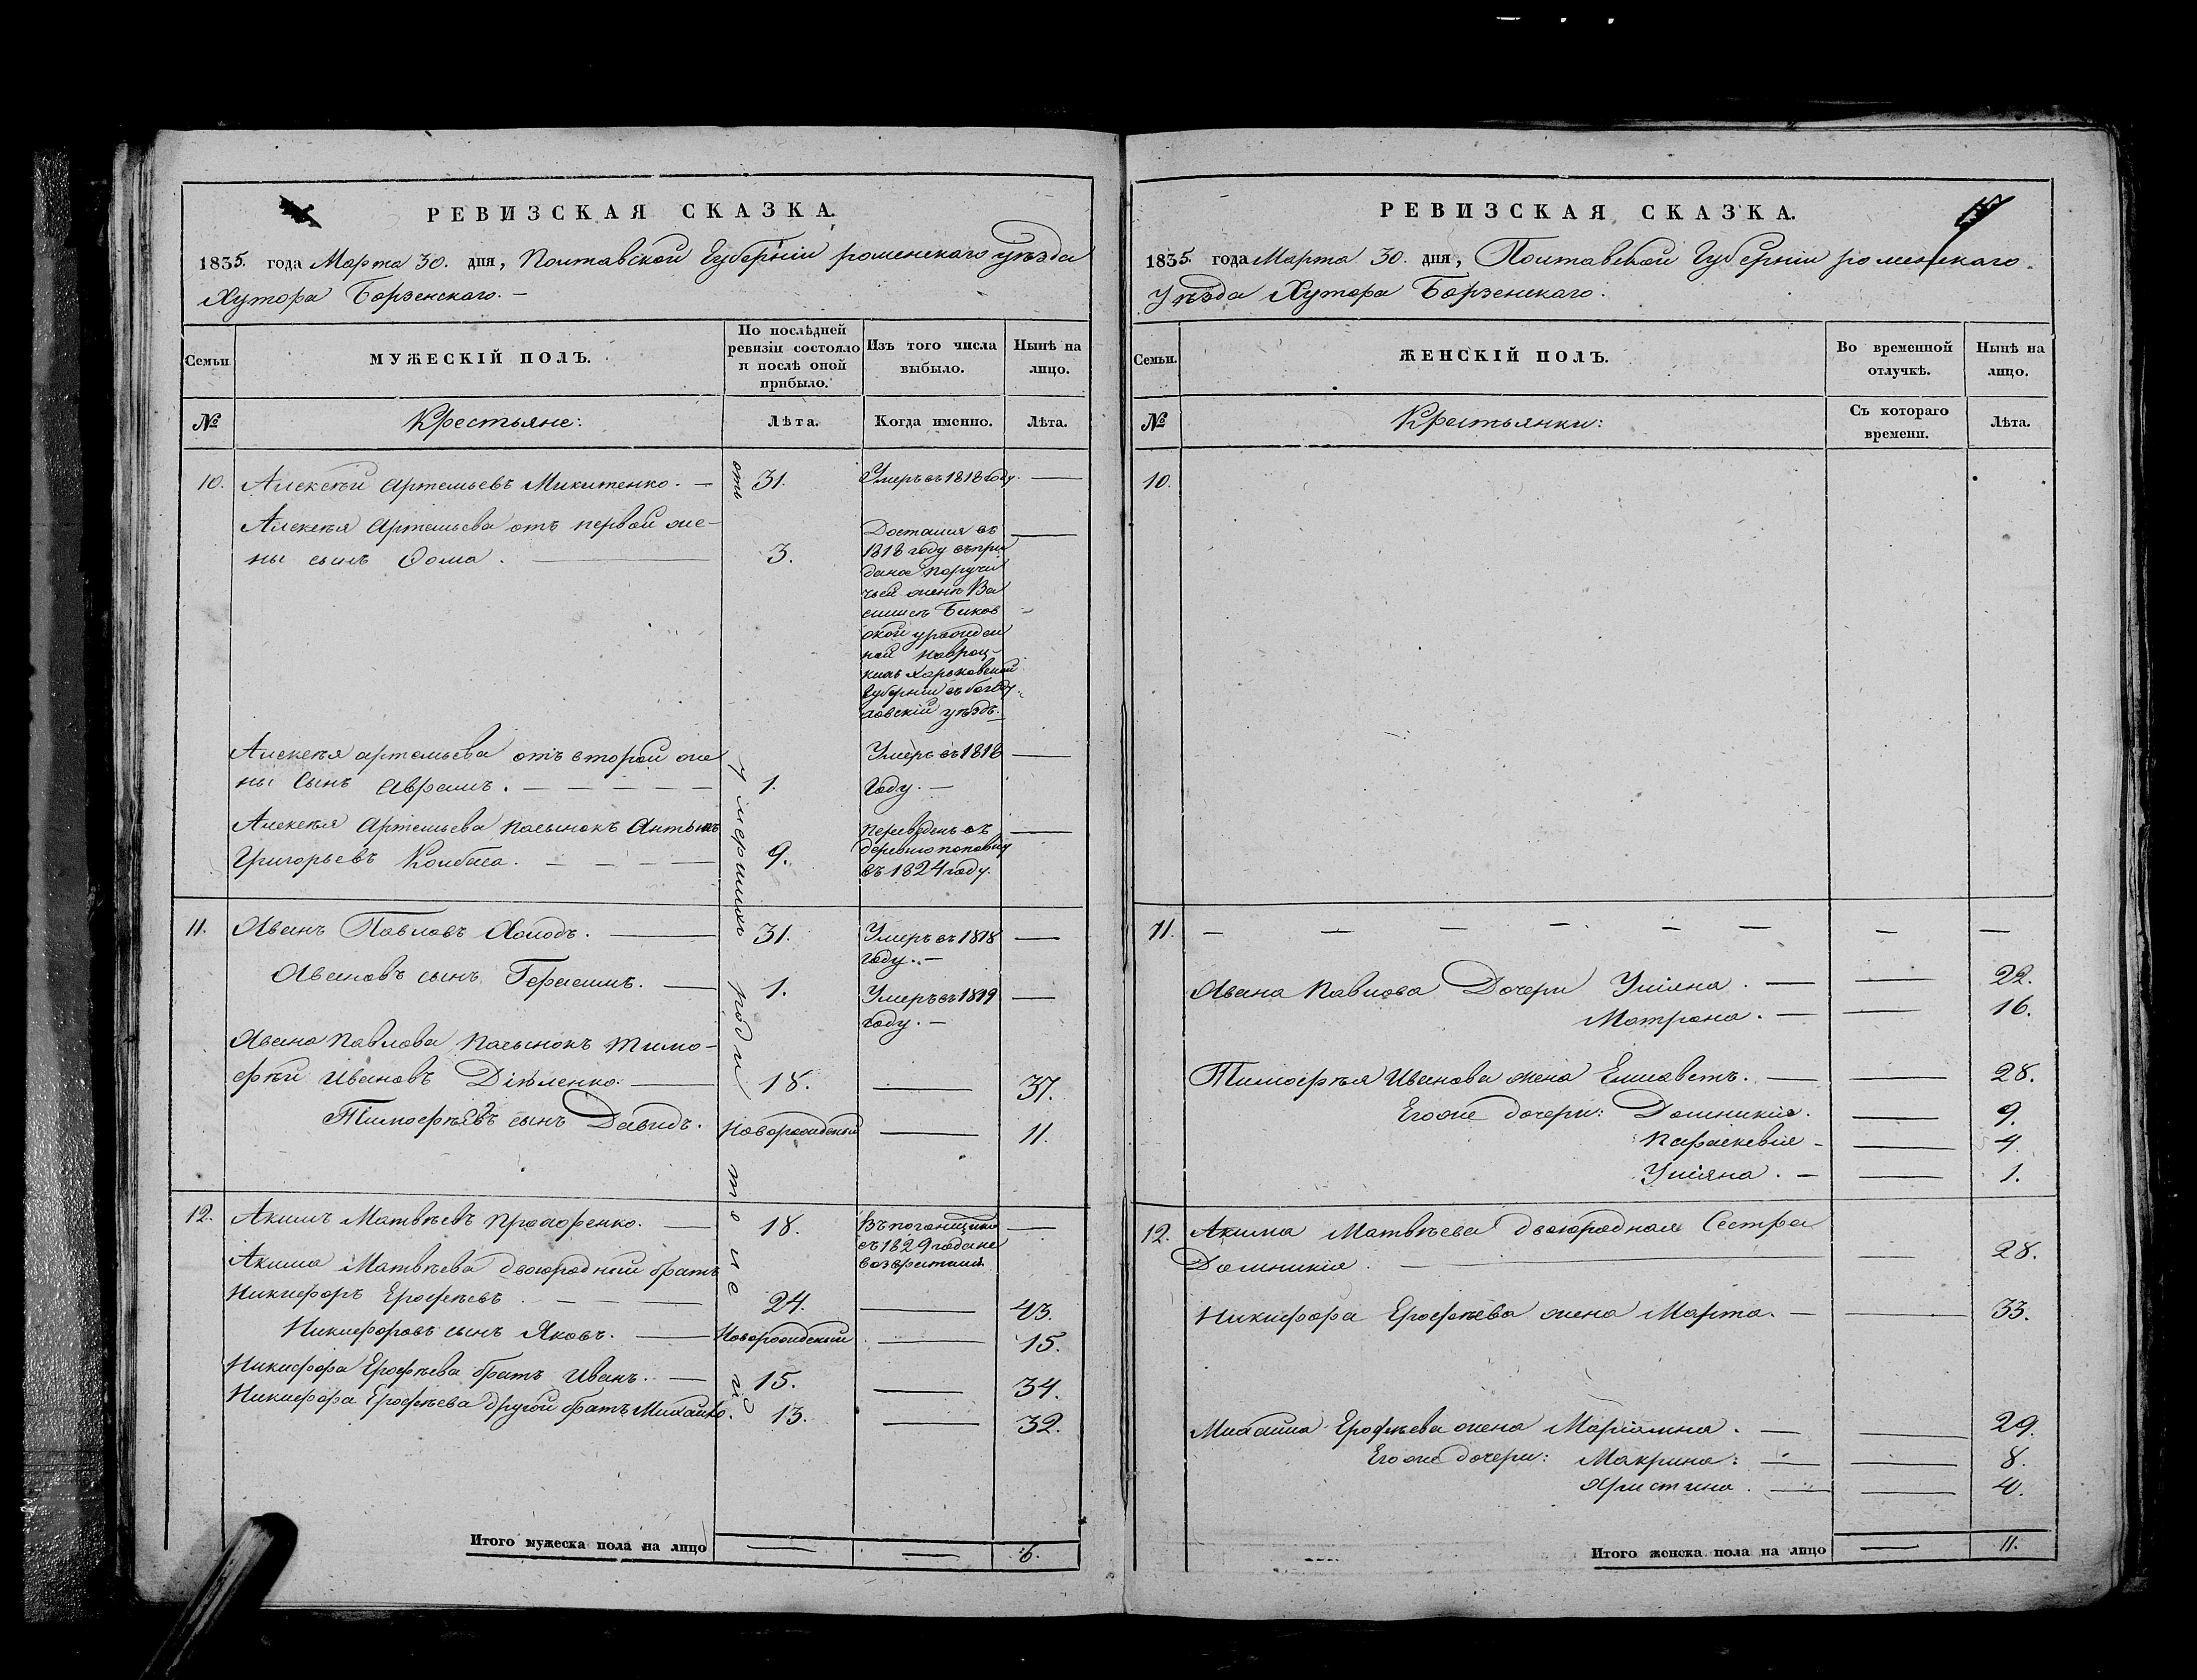 РЕВИЗСКАЯ СКАЗКА.
1835. года Марта 30. дня, Полтавской Губерніи роменскаго уѣзда
Хутора Борзенскаго. —
Семьи
МУЖЕСКІЙ ПОЛЪ.
По послѣдней ревизіи состояло и послѣ оной прибыло.
Изъ того числа выбыло.
Нынѣ на лицо.
№
Крестьяне:
Лѣта.
Когда именно.
Лѣта.
отъ умершихъ роди
10. Алексѣй Артемьевъ Микитенко. — 31. Умеръ въ 1818 году. —
Алексѣя Артемьева отъ первой же-
ны сынъ Ѳома. — 3.
Достался въ —
1818 году въ при
даное поручи
чьей женѣ Ва
силисѣ Биков
ской урожден
ной Навроц-
кихъ Харьковской
Губерніи въ богоду
ховскій уѣздъ.
Алексѣя артемьева отъ второй же
ны Сынъ Аврамъ. — — — — — 1. Умеръ въ 1818 —
Году. —
Алексѣя Артемьева пасынокъ Антонъ
Григорьевъ Колбаса. — — — — 9.
переведенъ въ —
деревню
въ 1824 году.
11. Иванъ Павловъ Холодъ. — 31. Умеръ въ 1818 —
году. —
Ивановъ сынъ Герасимъ. — 1. Умеръ въ 1819 —
году. —
Ивана Павлова пасынокъ Тимо-
фѣй Ивановъ — 18. — 37.
Тимофѣевъ сынъ Давидъ. Новорожденый — 11.
12. Акимъ Матвѣевъ Прохоренко. — 18. —
съ 1829 года не
возвратился
Акима Матвѣева двоюродный братъ
Никифоръ Ерофѣевъ. — — — 24. — 43.
Никифоровъ сынъ Яковъ. — Новорожденый — 15.
Никифора Ерофѣева братъ Иванъ. — 15. — 34.
Никифора Ерофѣева другой братъ Михайло. 13. — 32.
Итого мужеска пола на лицо — — 6.
РЕВИЗСКАЯ СКАЗКА.
1835 года Марта 30. дня, Полтавской Губерніи роменскаго
Уѣзда Хутора Борзенскаго.
Семьи.
ЖЕНСКІЙ ПОЛЪ.
Во временной отлучкѣ.
Нынѣ на лицо.
№
Крестьянки:
Съ котораго времени.
Лѣта.
10.
11. — — — — — — — —
Ивана Павлова Дочери Уліяна. — — 22.
Матрона. — — 16.
Тимофѣя Иванова жена Елисаветъ. — — 28.
Его же дочери: Домникія. — 9.
Параскевія — — 4.
Уліяна. — — 1.
12. Акима Матвѣева двоюродная Сестра
Домникія. — — 28.
Никифора Ерофѣева жена Марта. — — 33.
Михаила Ерофѣева жена Маріамна. — — 29.
Его же дочери: Макрина: — — 8.
Христина. — — 4.
Итого женска пола на лицо — 11.